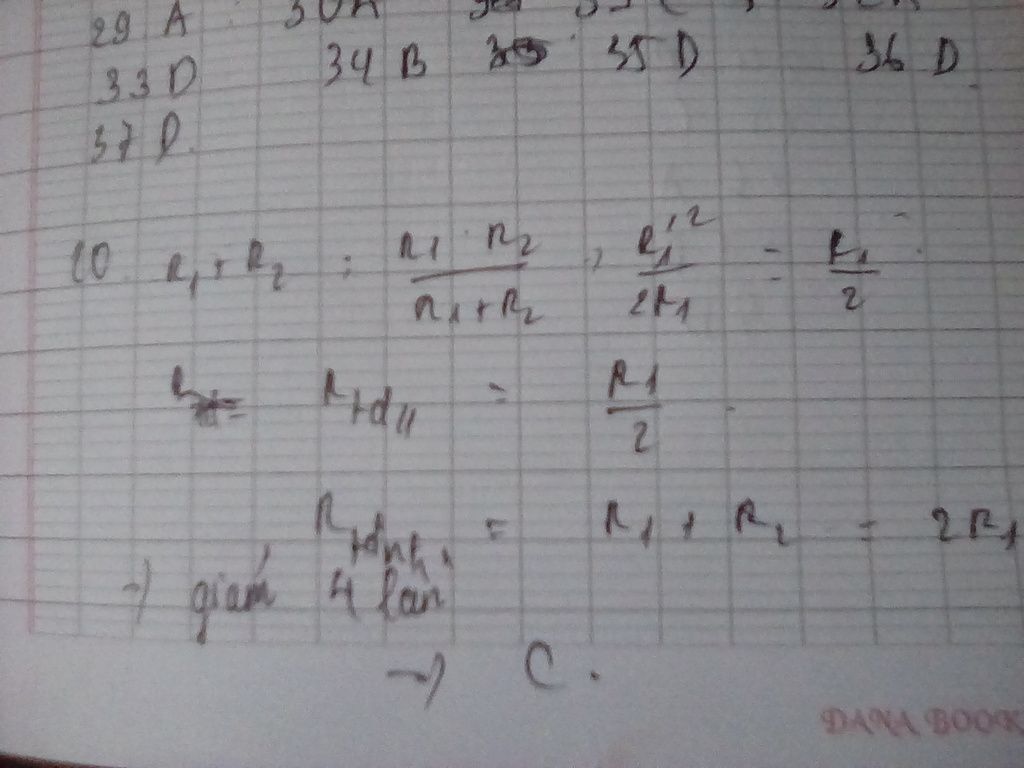 29 A 30 A
33 D 34 B 35 D 36 D
37 D.
10. R₁ + R₂ : R1 . R2 / R1 + R2 , R1'² / 2R1 = R1 / 2
R+d// = R1 / 2 .
R+dnt = R1 + R2 = 2R1
→ giảm 4 lần
→ C.
DANA BOOK